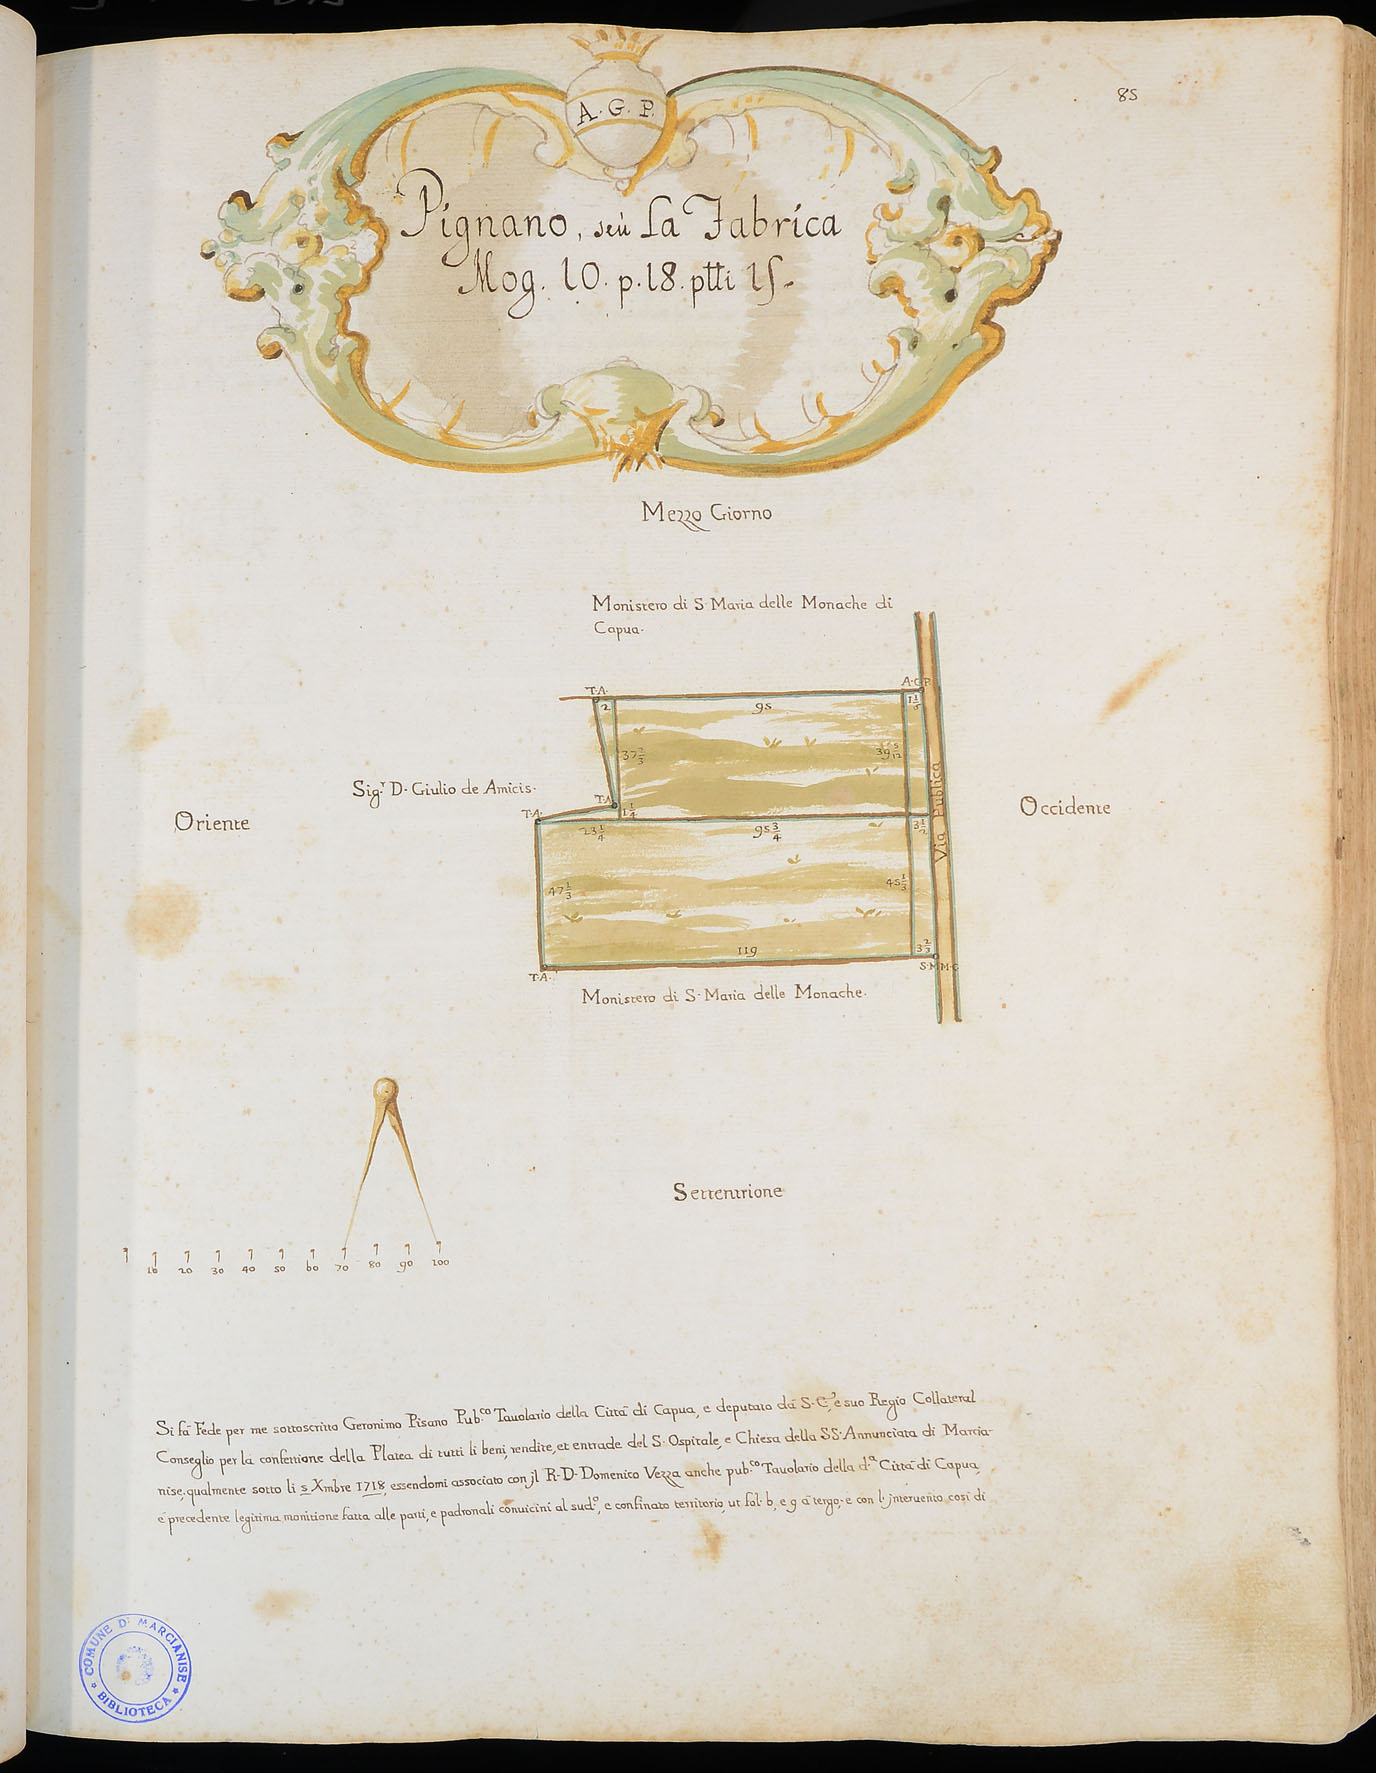 85
A. G. P.
Pignano, seù La Fabrica
Mog. 10. p. 18. ptti 15.
Mezzo Giorno
Monistero di S. Maria delle Monache di
Capua.
T. A.
A. G. P.
2
95
1 1/6
37 2/3
39 5/12
Sig.r D. Giulio de Amicis.
T. A.
T. A.
1 1/4
Oriente
Occidente
Via Publica
23 1/4
95 3/4
3 1/2
47 1/3
45 1/3
119
3 2/3
T. A.
S. M. M. C.
Monistero di S. Maria delle Monache.
Settentrione
10 20 30 40 50 60 70 80 90 100
Si fà Fede per me sottoscritto Geronimo Pisano Pub.co Tavolario della Città di Capua, e deputato dà S. E., e suo Regio Collateral
Conseglio per la confettione della Platea di tutti li beni, rendite, et entrade del S. Ospitale, e Chiesa della SS. Annunciata di Marcia-
nise, qualmente sotto li 5 Xmbre 1718, essendomi associato con jl R. D. Domenico Vezza anche pub.co Tavolario della d.a Città di Capua,
e precedente legitima monitione fatta alle parti, e padronali convicini al sud.o, e confinato territorio, ut fol. 6, e 9 à tergo, e con l'intervento così di
COMUNE DI MARCIANISE
BIBLIOTECA